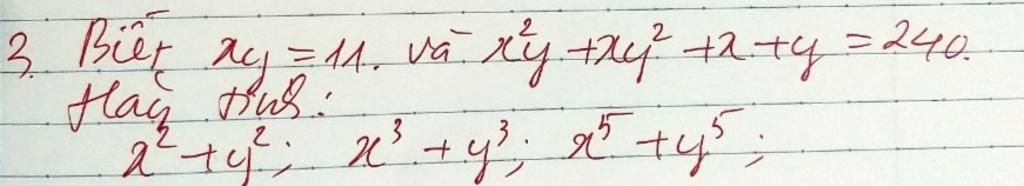 3. Biết xy = 11. và x²y + xy² + x + y = 240.
Hãy tính:
x² + y²; x³ + y³; x⁵ + y⁵;